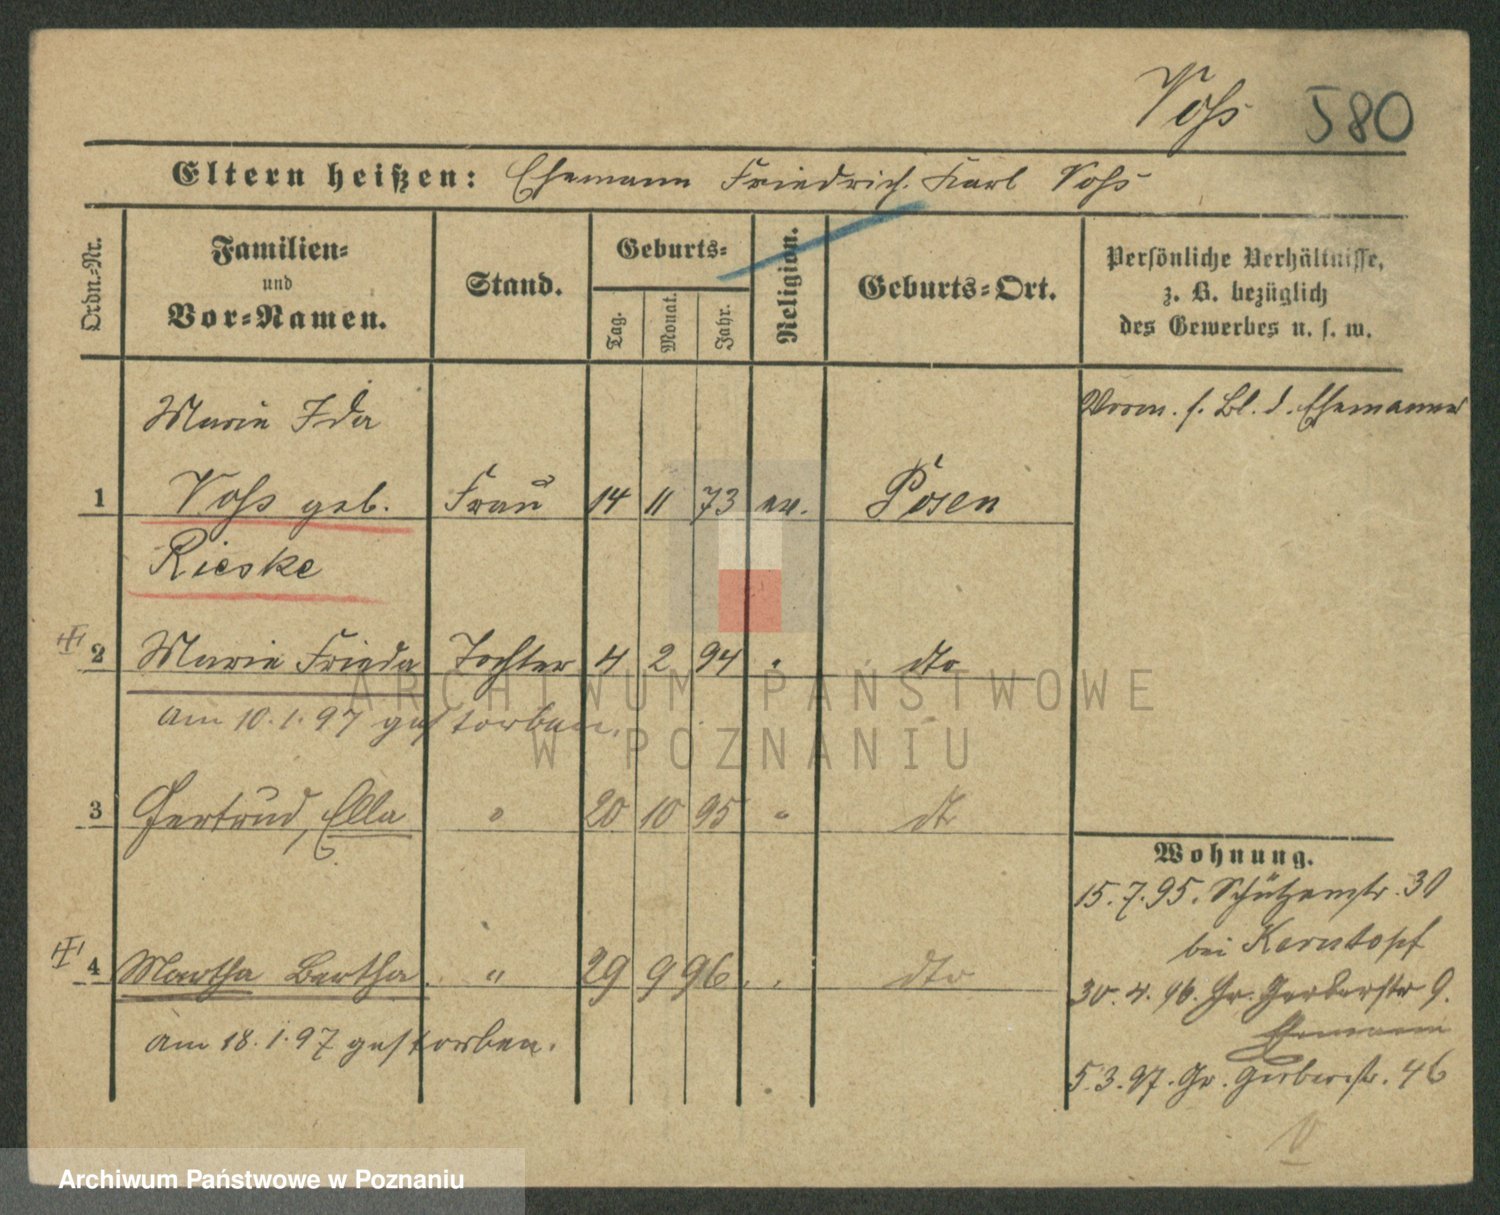 Voß 580
Eltern heißen: Ehemann Friedrich Karl Voß
Ordn.-Nr.
Familien-
und
Vor-Namen.
Stand.
Geburts-
Tag.
Monat.
Jahr.
Religion.
Geburts-Ort.
Persönliche Verhältnisse,
z. B. bezüglich
des Gewerbes u. s. w.
Marie Ida
1 Voß geb. Frau 14 11 73 ev. Posen
Rieske
s. Bl. d. Ehemannes
2 Marie Frieda Tochter 4 2 94 " dto
am 10.1.97 gestorben.
3 Gertrud, Ella " 20 10 95 " dt
4 Martha Bertha. " 29 9 96. " dto
am 18.1.97 gestorben.
Wohnung.
15.7.95. Schützenstr. 30
bei Kerntopf
30.4.96. Gr. Gerberstr 9.
Ehemann
5.3.97. Gr. Gerberstr. 46
ARCHIWUM PAŃSTWOWE
W POZNANIU
Archiwum Państwowe w Poznaniu